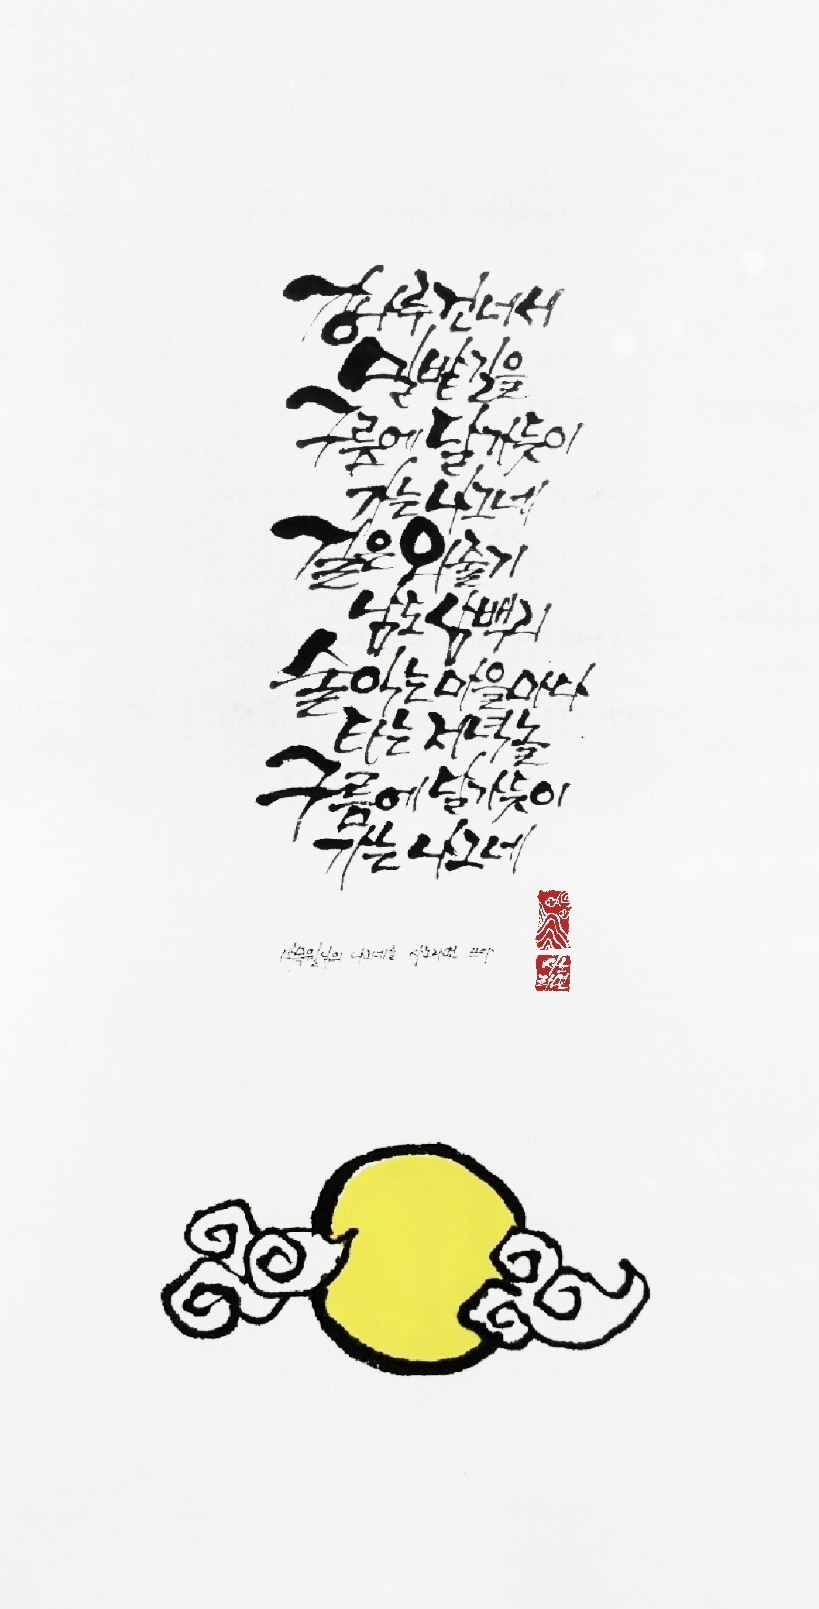 강나루 건너서
밀밭 길을
구름에 달 가듯이
가는 나그네
길은 외줄기
남도 삼백리
술 익는 마을마다
타는 저녁놀
구름에 달 가듯이
가는 나그네
박목월님의 나그네를